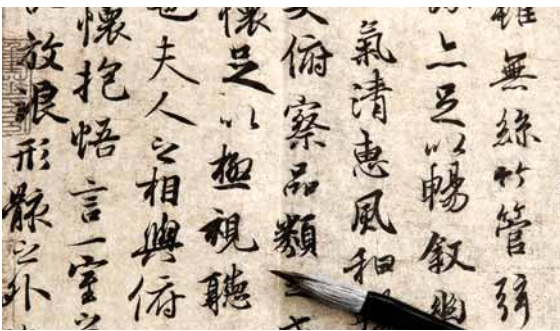 雖無絲竹管弦
亦足以暢敘幽
氣清惠風和
俯察品類之
懷足以極視聽
也夫人之相與俯
懷抱悟言一室之
放浪形骸之外